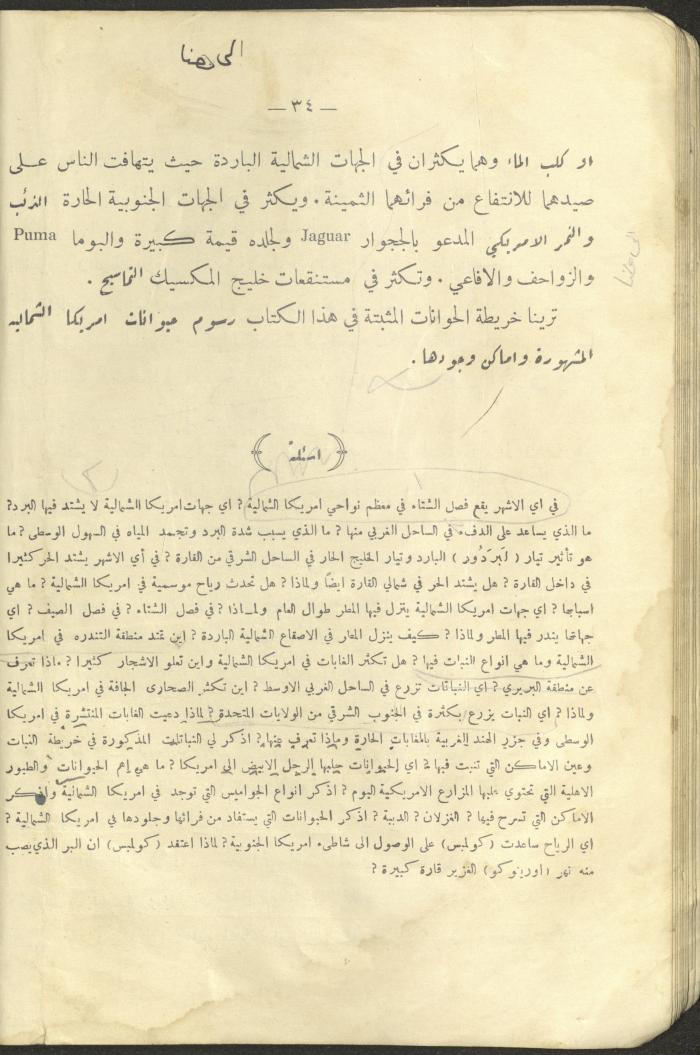 الى هنا
— ٣٤ —
او كلب الماء وهما يكثران في الجهات الشمالية الباردة حيث يتهافت الناس على
صيدهما للانتفاع من فرائهما الثمينة . ويكثر في الجهات الجنوبية الحارة الذئب
والنمر الامريكي المدعو بالججوار Jaguar ولجلده قيمة كبيرة والبوما Puma
والزواحف والافاعي . وتكثر في مستنقعات خليج المكسيك التماسيح .
الى هنا
ترينا خريطة الحوانات المثبتة في هذا الكتاب رسوم حيوانات امريكا الشماليه
المشهورة واماكن وجودها .
( اسئلة )
في اي الاشهر يقع فصل الشتاء في معظم نواحي امريكا الشمالية ? اي جهات امريكا الشمالية لا يشتد فيها البرد ?
ما الذي يساعد على الدفء في الساحل الغربي منها ? ما الذي يسبب شدة البرد وتجمد المياه في السهول الوسطى ? ما
هو تأثير تيار ( لَبرَدُور ) البارد وتيار الخليج الحار في الساحل الشرقي من القارة ? في أي الاشهر يشتد الحر كثيرا
في داخل القارة ? هل يشتد الحر في شمالي القارة ايضاً ولماذا ? هل تحدث رياح موسمية في امريكا الشمالية ? ما هي
اسبابها ? اي جهات امريكا الشمالية ينزل فيها المطر طوال العام ولماذا ? في فصل الشتاء ? في فصل الصيف ? اي
جهاتها يندر فيها المطر ولماذا ? كيف ينزل المطر في الاصقاع الشمالية الباردة ? اين تمتد منطقة التندره في امريكا
الشمالية وما هي انواع النبات فيها ? هل تكثر الغابات في امريكا الشمالية واين تعلو الاشجار كثيرا ? ماذا تعرف
عن منطقة البريري ? اي النباتات تزرع في الساحل الغربي الاوسط ? اين تكثر الصحارى الجافة في امريكا الشمالية
ولماذا ? اي النبات يزرع بكثرة في الجنوب الشرقي من الولايات المتحدة ? لماذا دعيت الغابات المنتشرة في امريكا
الوسطى وفي جزر الهند الغربية بالغابات الحارة وماذا تعرف عنها ? اذكر لي النباتات المذكورة في خريطة النبات
وعين الاماكن التي تنبت فيها ? اي الحيوانات جلبها الرجل الابيض الى امريكا ? ما هي اهم الحيوانات والطيور
الاهلية التي تحتوي عليها المزارع الامريكية اليوم ? اذكر انواع الجواميس التي توجد في امريكا الشمالية واذكر
الاماكن التي تسرح فيها ? الغزلان ? الدببة ? اذكر الحيوانات التي يستفاد من فرائها وجلودها في امريكا الشمالية ?
اي الرياح ساعدت (كولمبس) على الوصول الى شاطىء امريكا الجنوبية ? لماذا اعتقد (كولمبس) ان البر الذي يصب
منه نهر (اورينوكو) الغزير قارة كبيرة ?